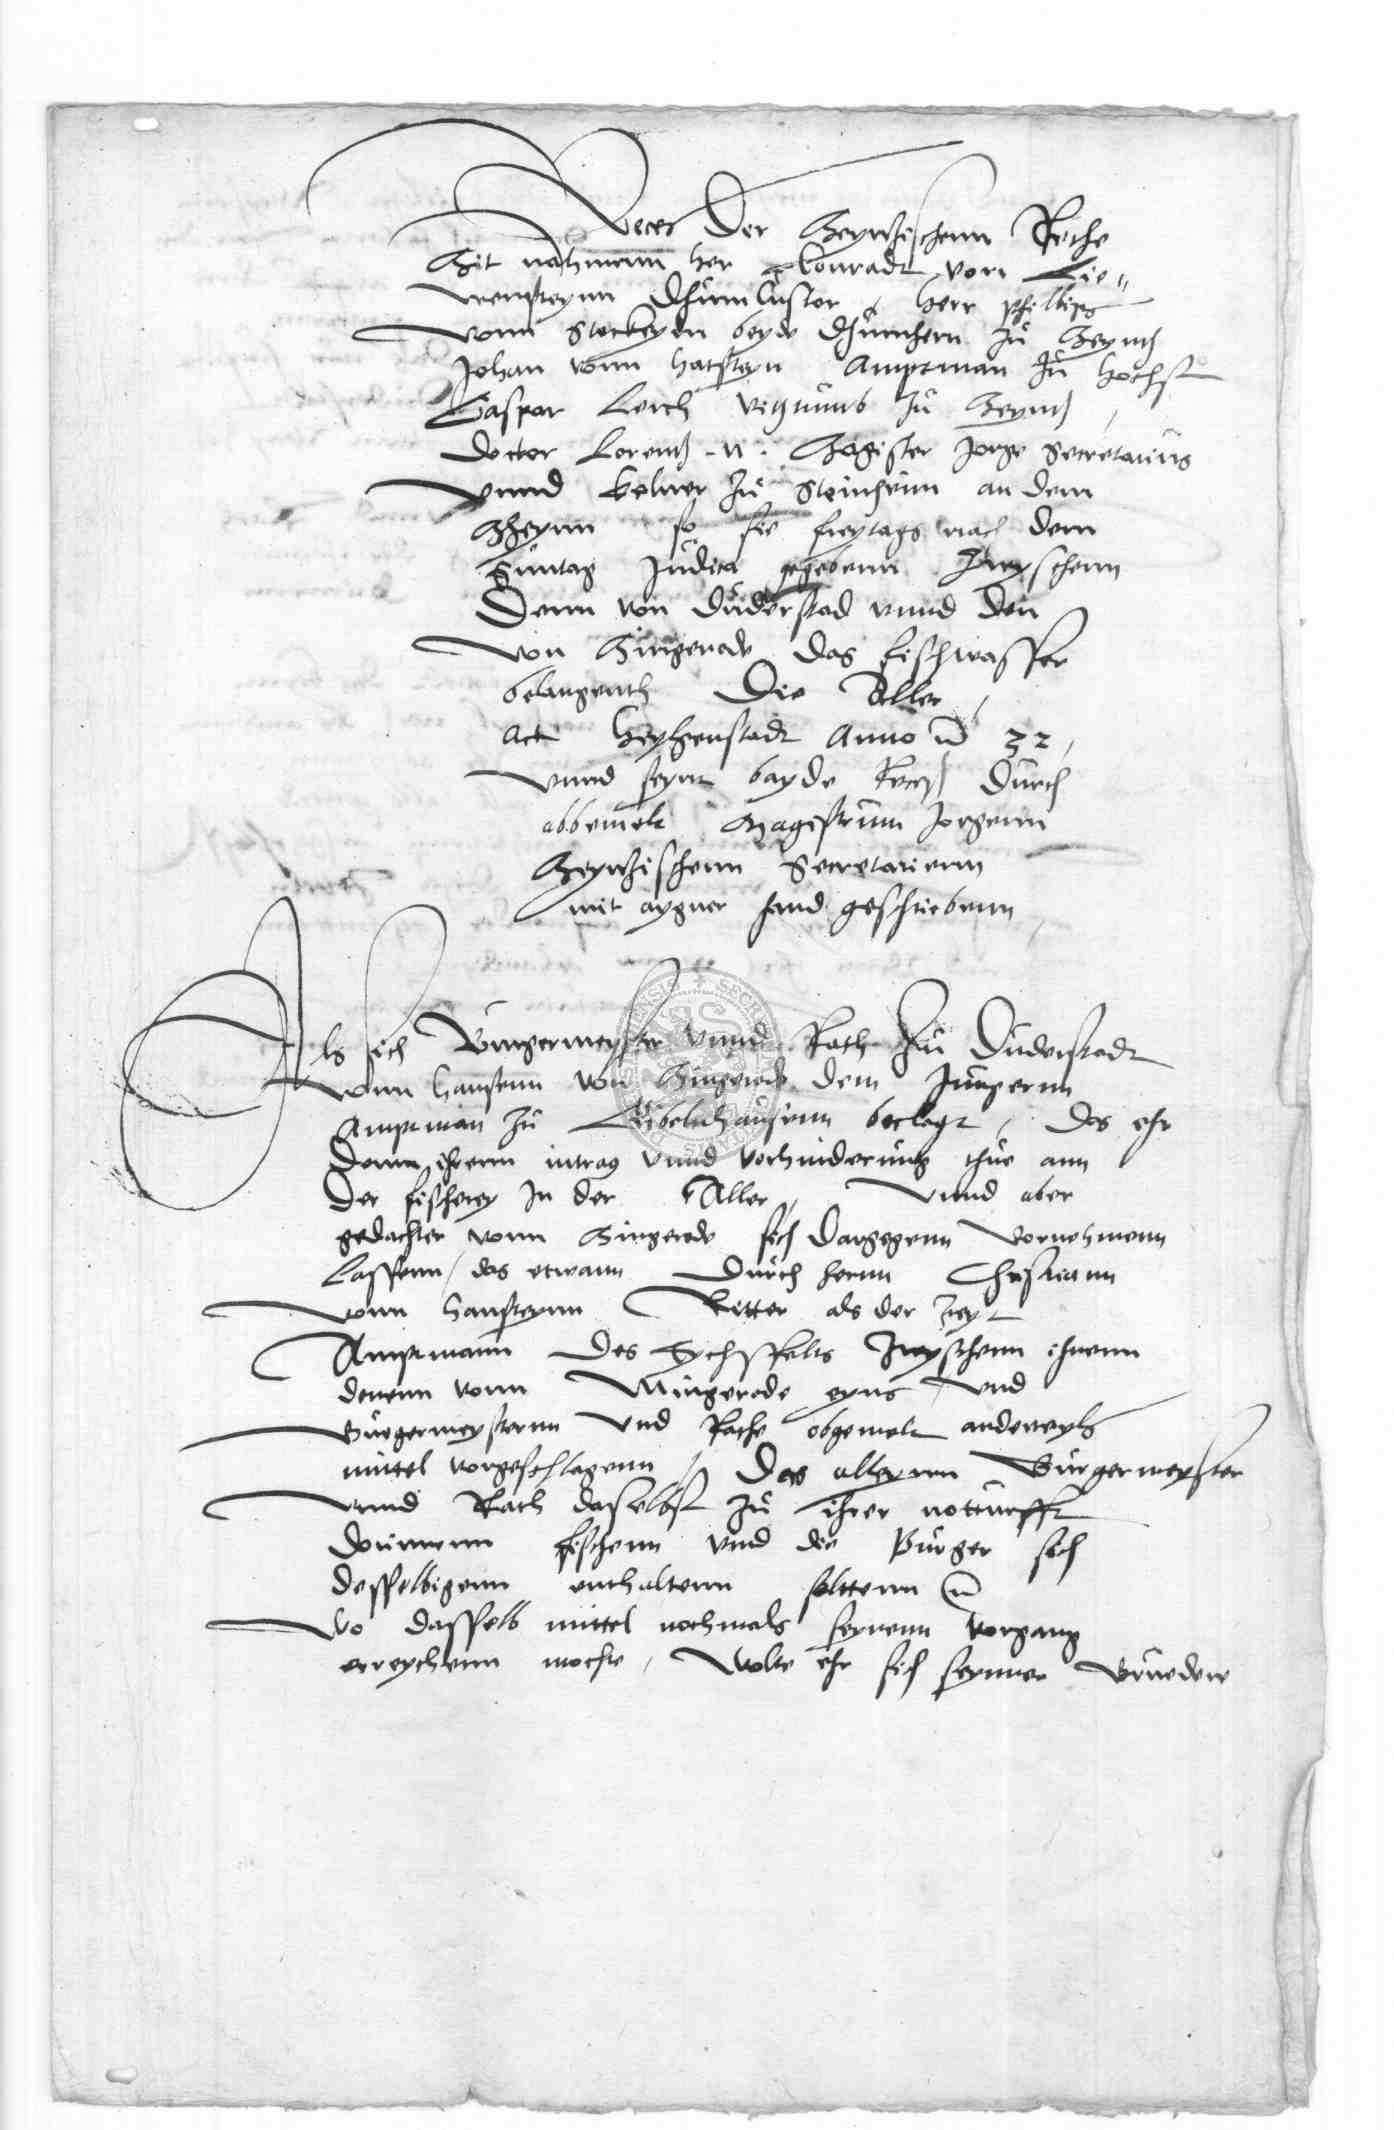 Reces Der Meyntzischenn Rethe
Mit nahmenn her Conradt von Lie„
wensteynn Dhumcustor, Herr Philips
vonn Stockeym beyde Dhumhern zu Meyntz
Johan vonn Hatsteyn Amptman zu Hochst
Caspar Lerch vitzthumb zu Meyntz,
Doctor Lorentz Magister Jorge Secretarius
vnnd kelner zu Steinheim an dem
Meynn so sie freytags nach dem
Suntag Judica gegebenn Zwyschenn
Denn von Duderstad vnnd den
von Mingerode das fischwasser
belangenth Die Aller,
Act Heylgenstadt Anno 32,
vnnd seynt bayde Recess durch
obbemelt Magistrum Jorgenn
Meyntzischenn Secretarienn
mit aygner hand geschriebenn,
Als sich Burgermeyster vnnd Rath zu Duderstadt
vonn Hansenn von Mingerode dem Jungernn
Amptman zu Gibeldehausenn beclagt, das ehr
Denn ihrenn intrag vnnd vorhinderung thue ann
Der fischerey in der Aller, vnnd aber
gedachter vonn Mingerode sich dargegenn vornehmenn
Lassenn, das etwann durch hernn
vonn Hansteynn Ritter als der Zeyt
Amptmann des Eychsfelts Zwyschenn ihnenn
denenn vonn Mingerode eyns vnd
Burgermeysternn vnd Rathe obgemelt anderteyls
mittel vorgeschlagenn, Das alleynn Burgermeyster
vnnd Rath daselbst zu ihrer notturfft
dorinnenn fischenn vnd die Burger sich
desselbigenn enthaltenn soltenn
Wo dasselb mittel nochmals seynenn vorgang
erreychenn mochte, Wolte ehr sich seynner Bruedere